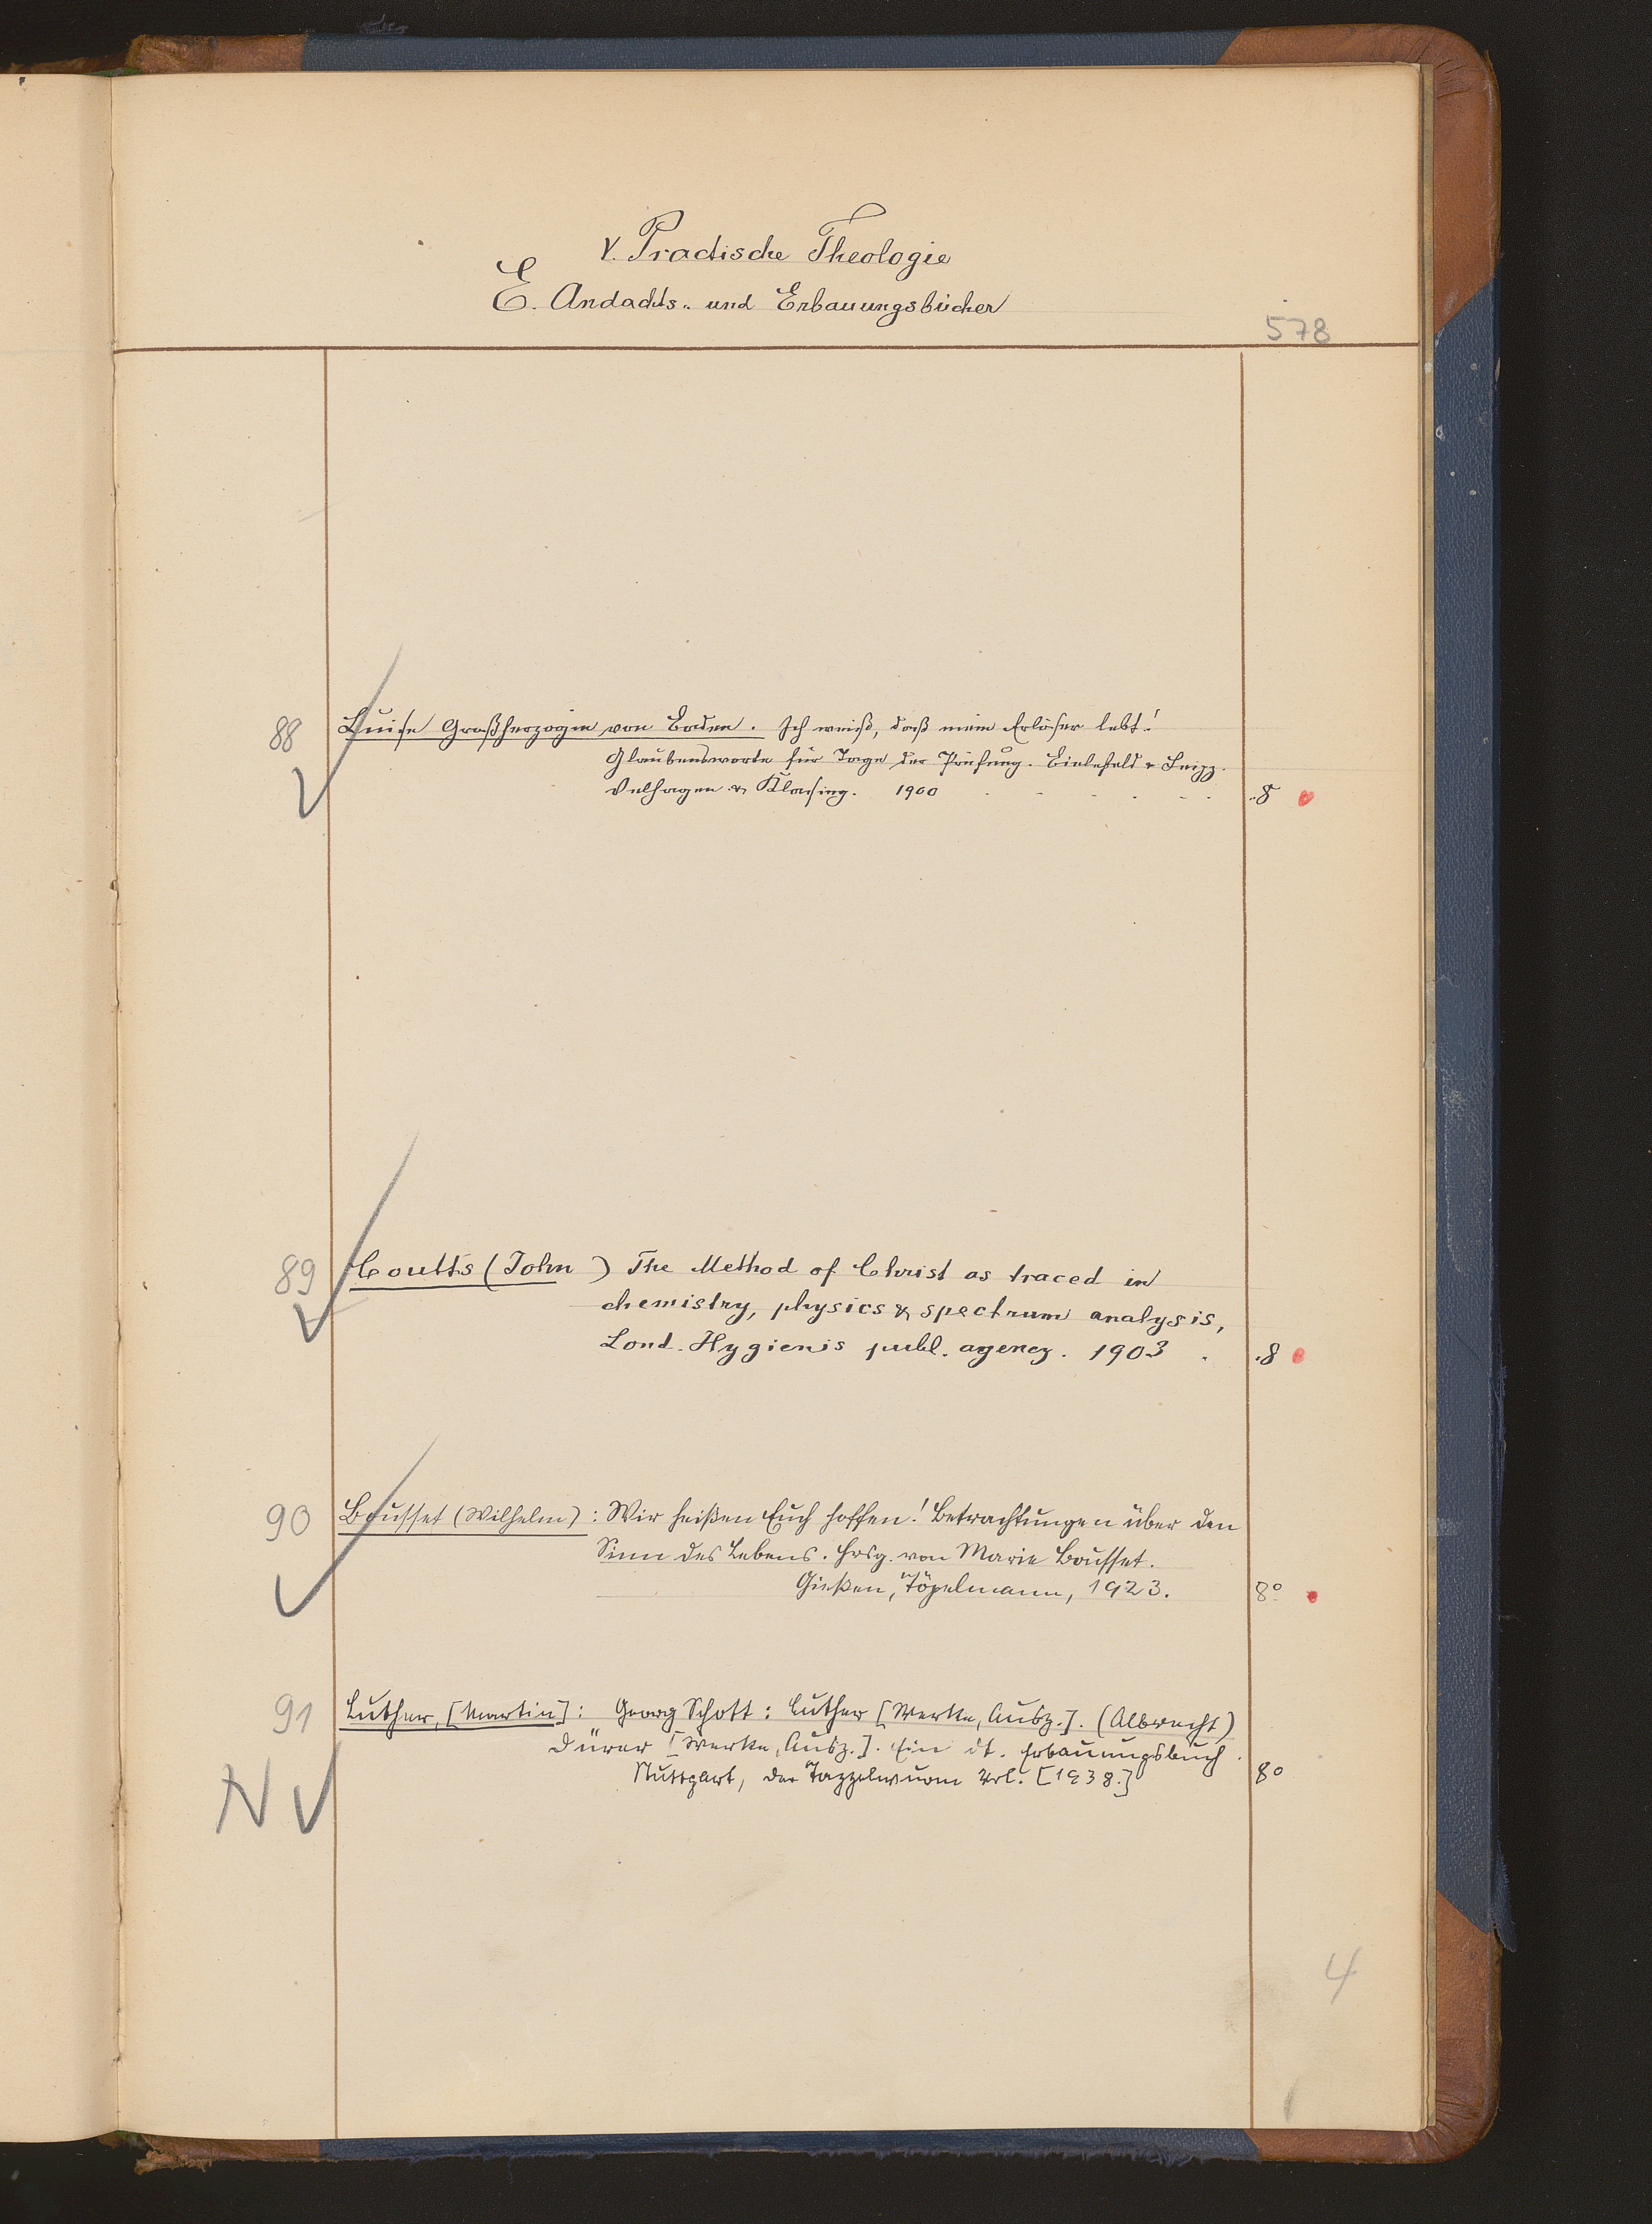 V. Practische Theologie
E. Andachts- und Erbauungsbücher
578
88 Luise Großherzogin von Baden. Ich weiß, daß mein Erlöser lebt!
Glaubensworte für Tage der Prüfung. Bielefeld & Leipz.
Velhagen & Klasing. 1900 8
89 Coutts (John) The Method of Christ as traced in
chemistry, physics & spectrum analysis,
Lond. Hygienis publ. agency. 1903 . 8
90 Bousset (Wilhelm): Wir heißen Euch hoffen! Betrachtungen über den
Sinn des Lebens. Hrsg. von Marie Bousset.
Gießen, Töpelmann, 1923. 8°
91 Luther, [Martin]: Georg Schott: Luther [Werke, Ausz.]. (Albrecht)
Dürer [Werke, Ausz.]. Ein dt. Erbauungsbuch.
Stuttgart, Der Tazzelwurm Verl. [1938.] 8°
N
4